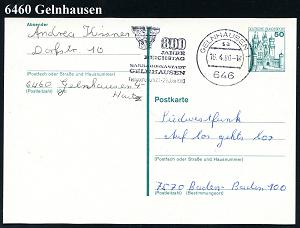 6460 Gelnhausen
Absender
Andrea Kissner
Dorfstr. 10
(Postfach oder Straße und Hausnummer)
6460 Gelnhausen
(Postleitzahl)
800
JAHRE
REICHSTAG
BARBAROSSASTADT
GELNHAUSEN
GELNHAUSEN
646
DEUTSCHE BUNDESPOST
50
Postkarte
Südwestfunk
Auf los gehts los
(Postfach oder Straße und Hausnummer)
7570 Baden-Baden 100
(Postleitzahl) (Bestimmungsort)